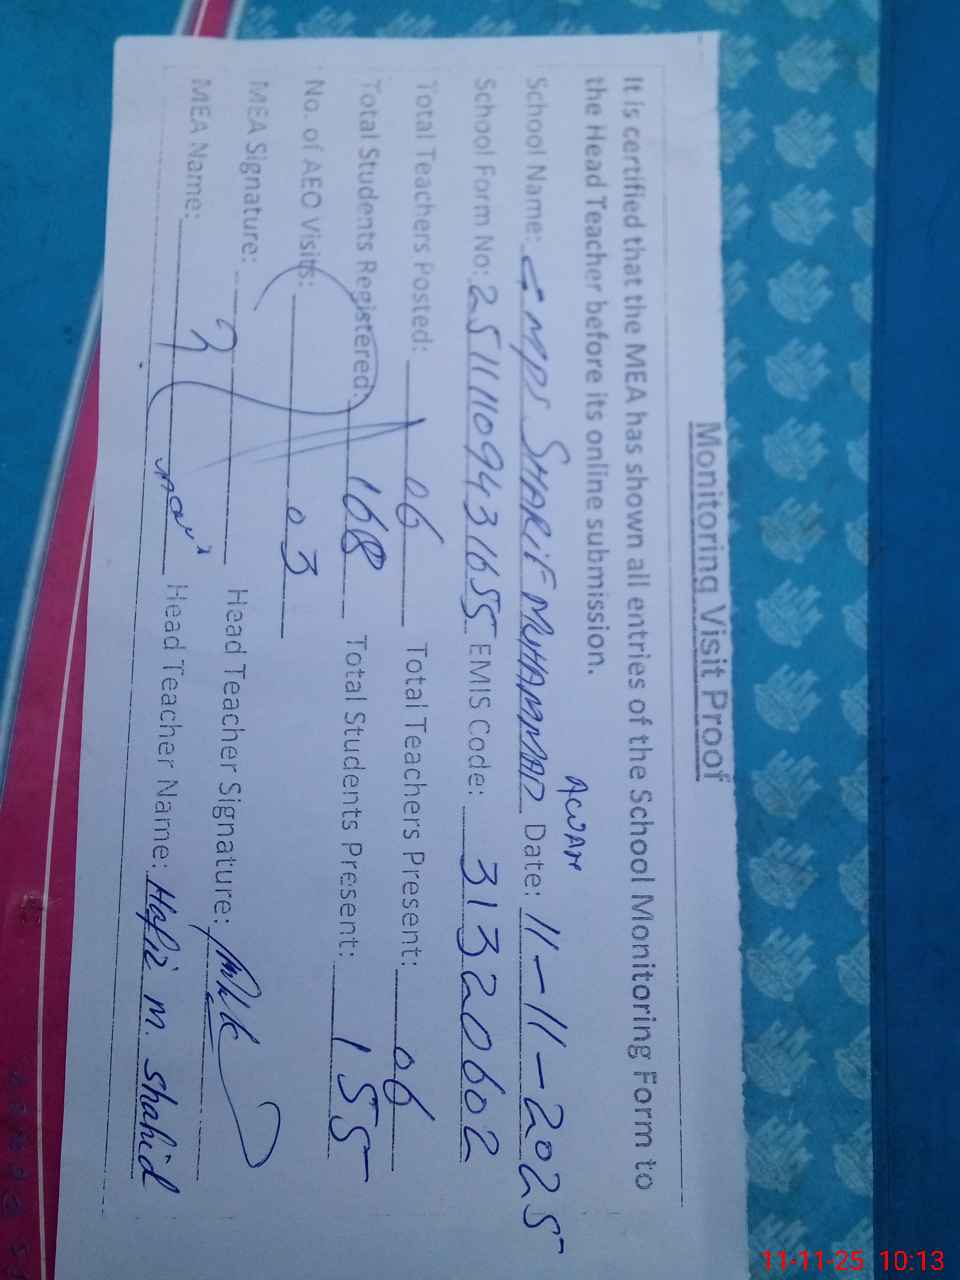 Monitoring Visit Proof
It is certified that the MEA has shown all entries of the School Monitoring Form to
the Head Teacher before its online submission.
AWAN
School Name: GMPS SHARIF MUHAMMAD Date: 11-11-2025
School Form No: 25111109431655 EMIS Code: 31320602
Total Teachers Posted: 06 Total Teachers Present: 06
Total Students Registered: 168 Total Students Present: 155
No. of AEO Visits: 03
MEA Signature: Head Teacher Signature:
MEA Name: Head Teacher Name: Hafiz M. Shahid
11-11-25 10:13